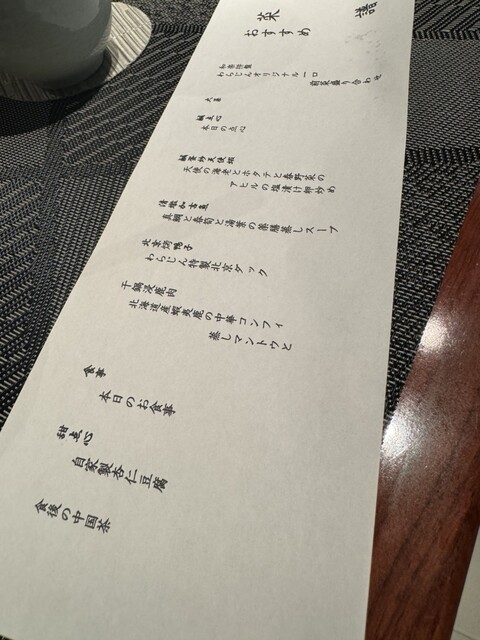 菜譜
おすすめ
わらじんオリジナル一口
前菜盛り合わせ
大喜
鹹点心
本日の点心
天使の海老とホタテと春野菜の
アヒルの塩漬け卵炒め
真鯛と春筍と湯葉の薬膳蒸しスープ
北京訪鴨子
わらじん特製北京ダック
干鍋浸鹿肉
北海道産蝦夷鹿の中華コンフィ
蒸しマントウと
食事
本日のお食事
甜点心
自家製杏仁豆腐
食後の中国茶